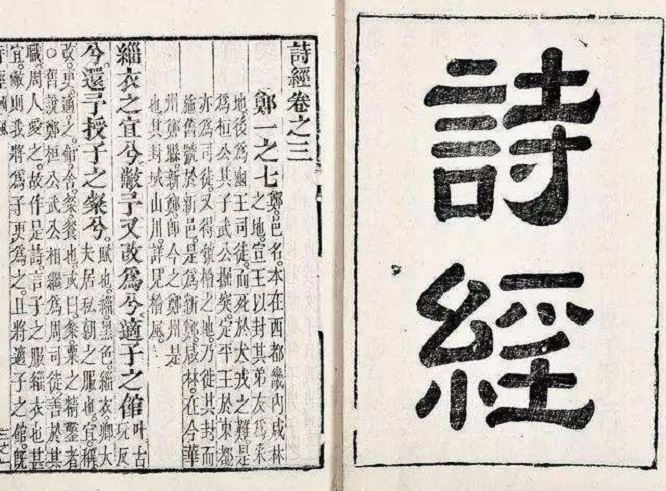 詩經
詩經卷之三
鄭一之七 鄭。邑名。本在西都畿內咸林
之地。宣王以封其弟友爲采
地後爲幽王司徒。而死於犬戎之難。是
爲桓公。其子武公掘突。定平王於東都
亦爲司徒。又得虢檜之地。乃徙其封。而
施舊號於新邑。是爲新鄭。咸林。在今華
州鄭縣。新鄭。即今之鄭州是
也。其封域山川。詳見檜風。
緇衣之宜兮。敝予又改爲兮。適子之館叶古
玩反
兮。還予授子之粲兮。賦也。緇。黑色。緇衣。卿大
夫居私朝之服也。宜。稱
改。更。適。之。館。舍。粲。餐也。或曰。粲。粟之精鑿者
○舊說鄭桓公武公。相繼爲周司徒。善於其
職。周人愛之。故作是詩。言子之服緇衣也甚
宜。敝則我將爲子更爲之。且將適子之館。旣